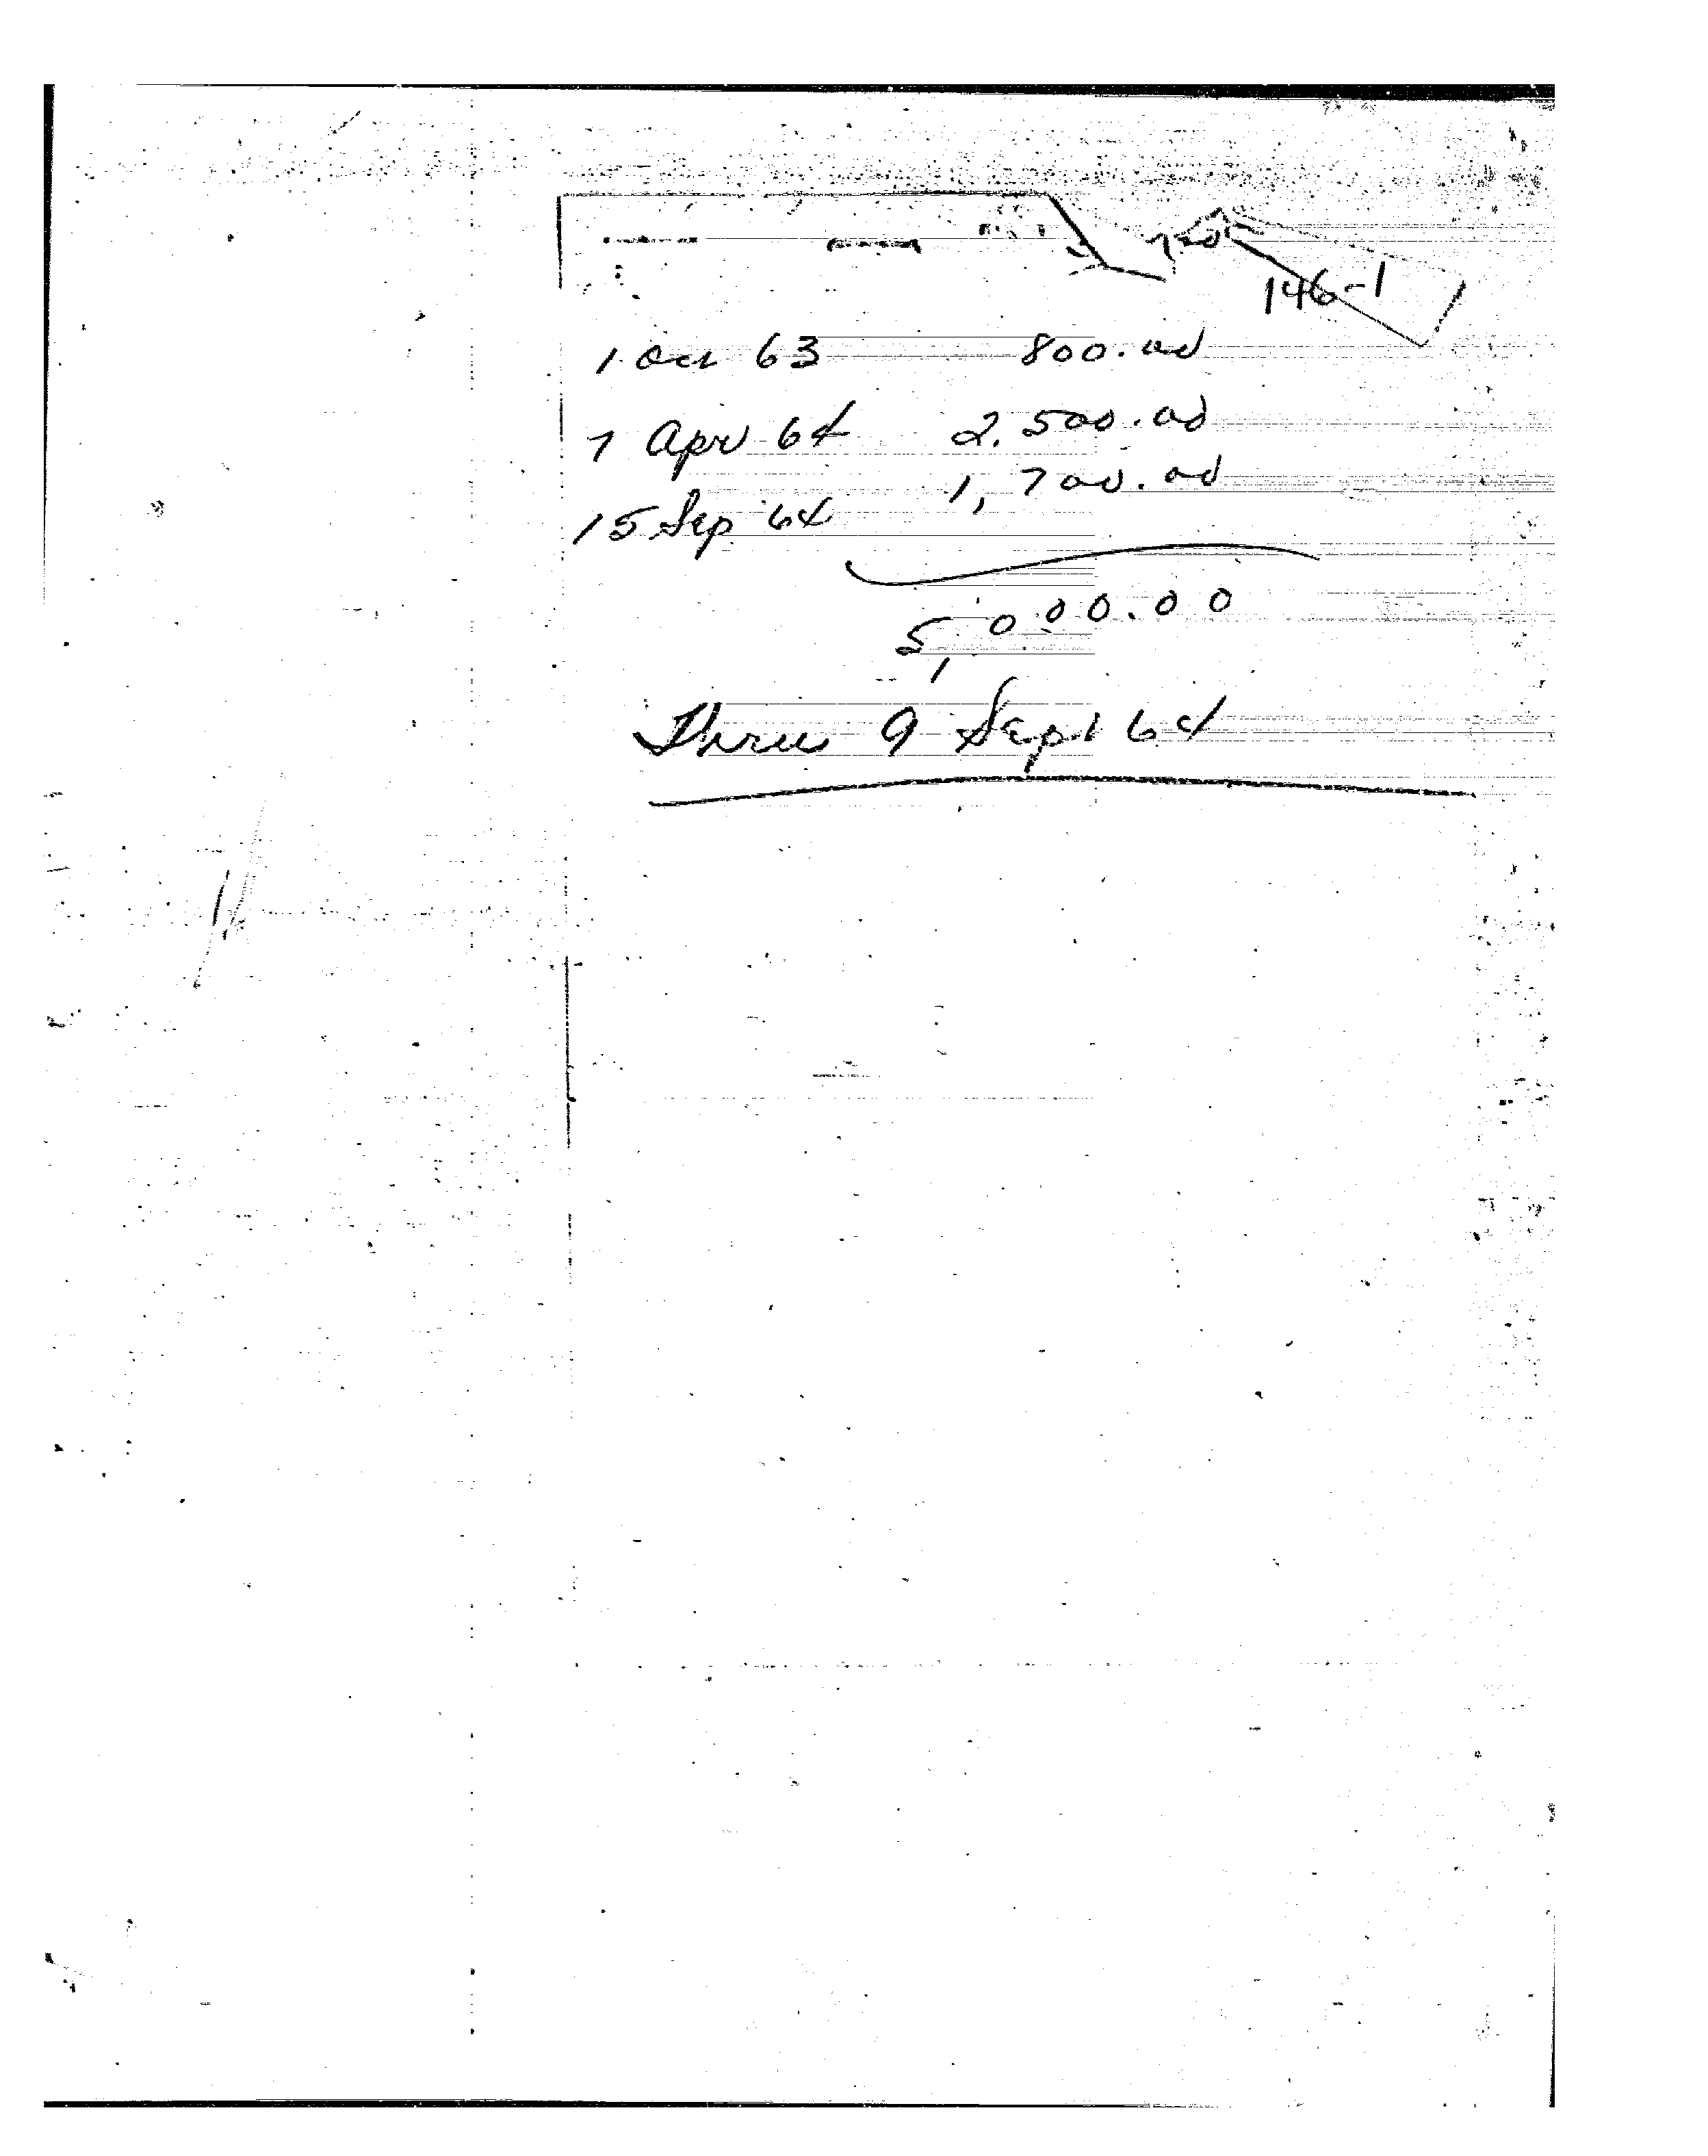 146-1
1 Oct 63 800.00
7 Apr 64 2,500.00
15 Sep 64 1,700.00
5,000.00
Thru 9 Sept 64